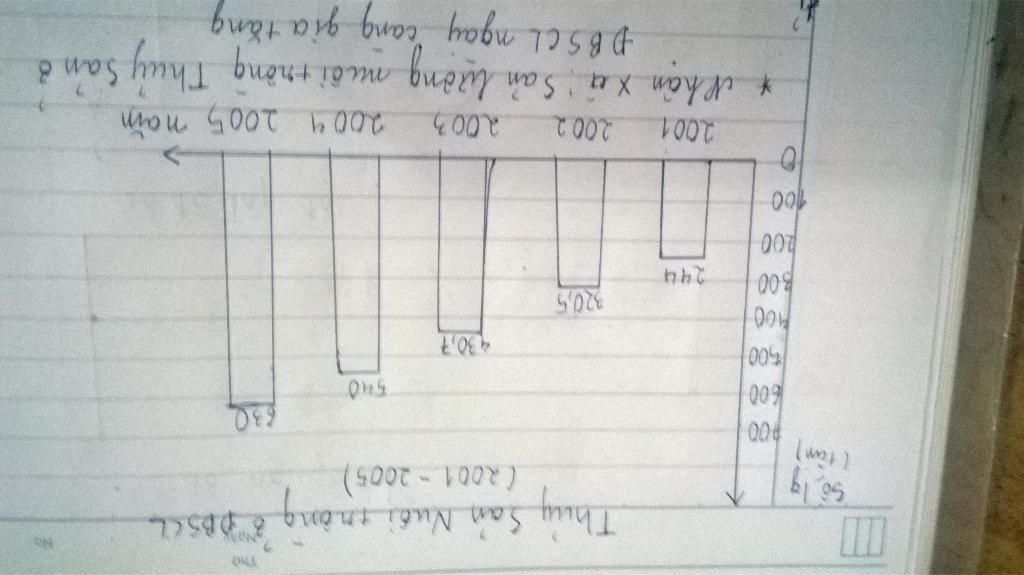 Thủy Sản Nuôi trồng ở ĐBSCL
(2001 - 2005)
Số lg
(tấn)
700
600
500
400
300
200
100
0
244
320,5
430,7
540
630
2001 2002 2003 2004 2005 năm
* Nhận xét: Sản lượng nuôi trồng Thủy Sản ở
ĐBSCL ngày càng gia tăng